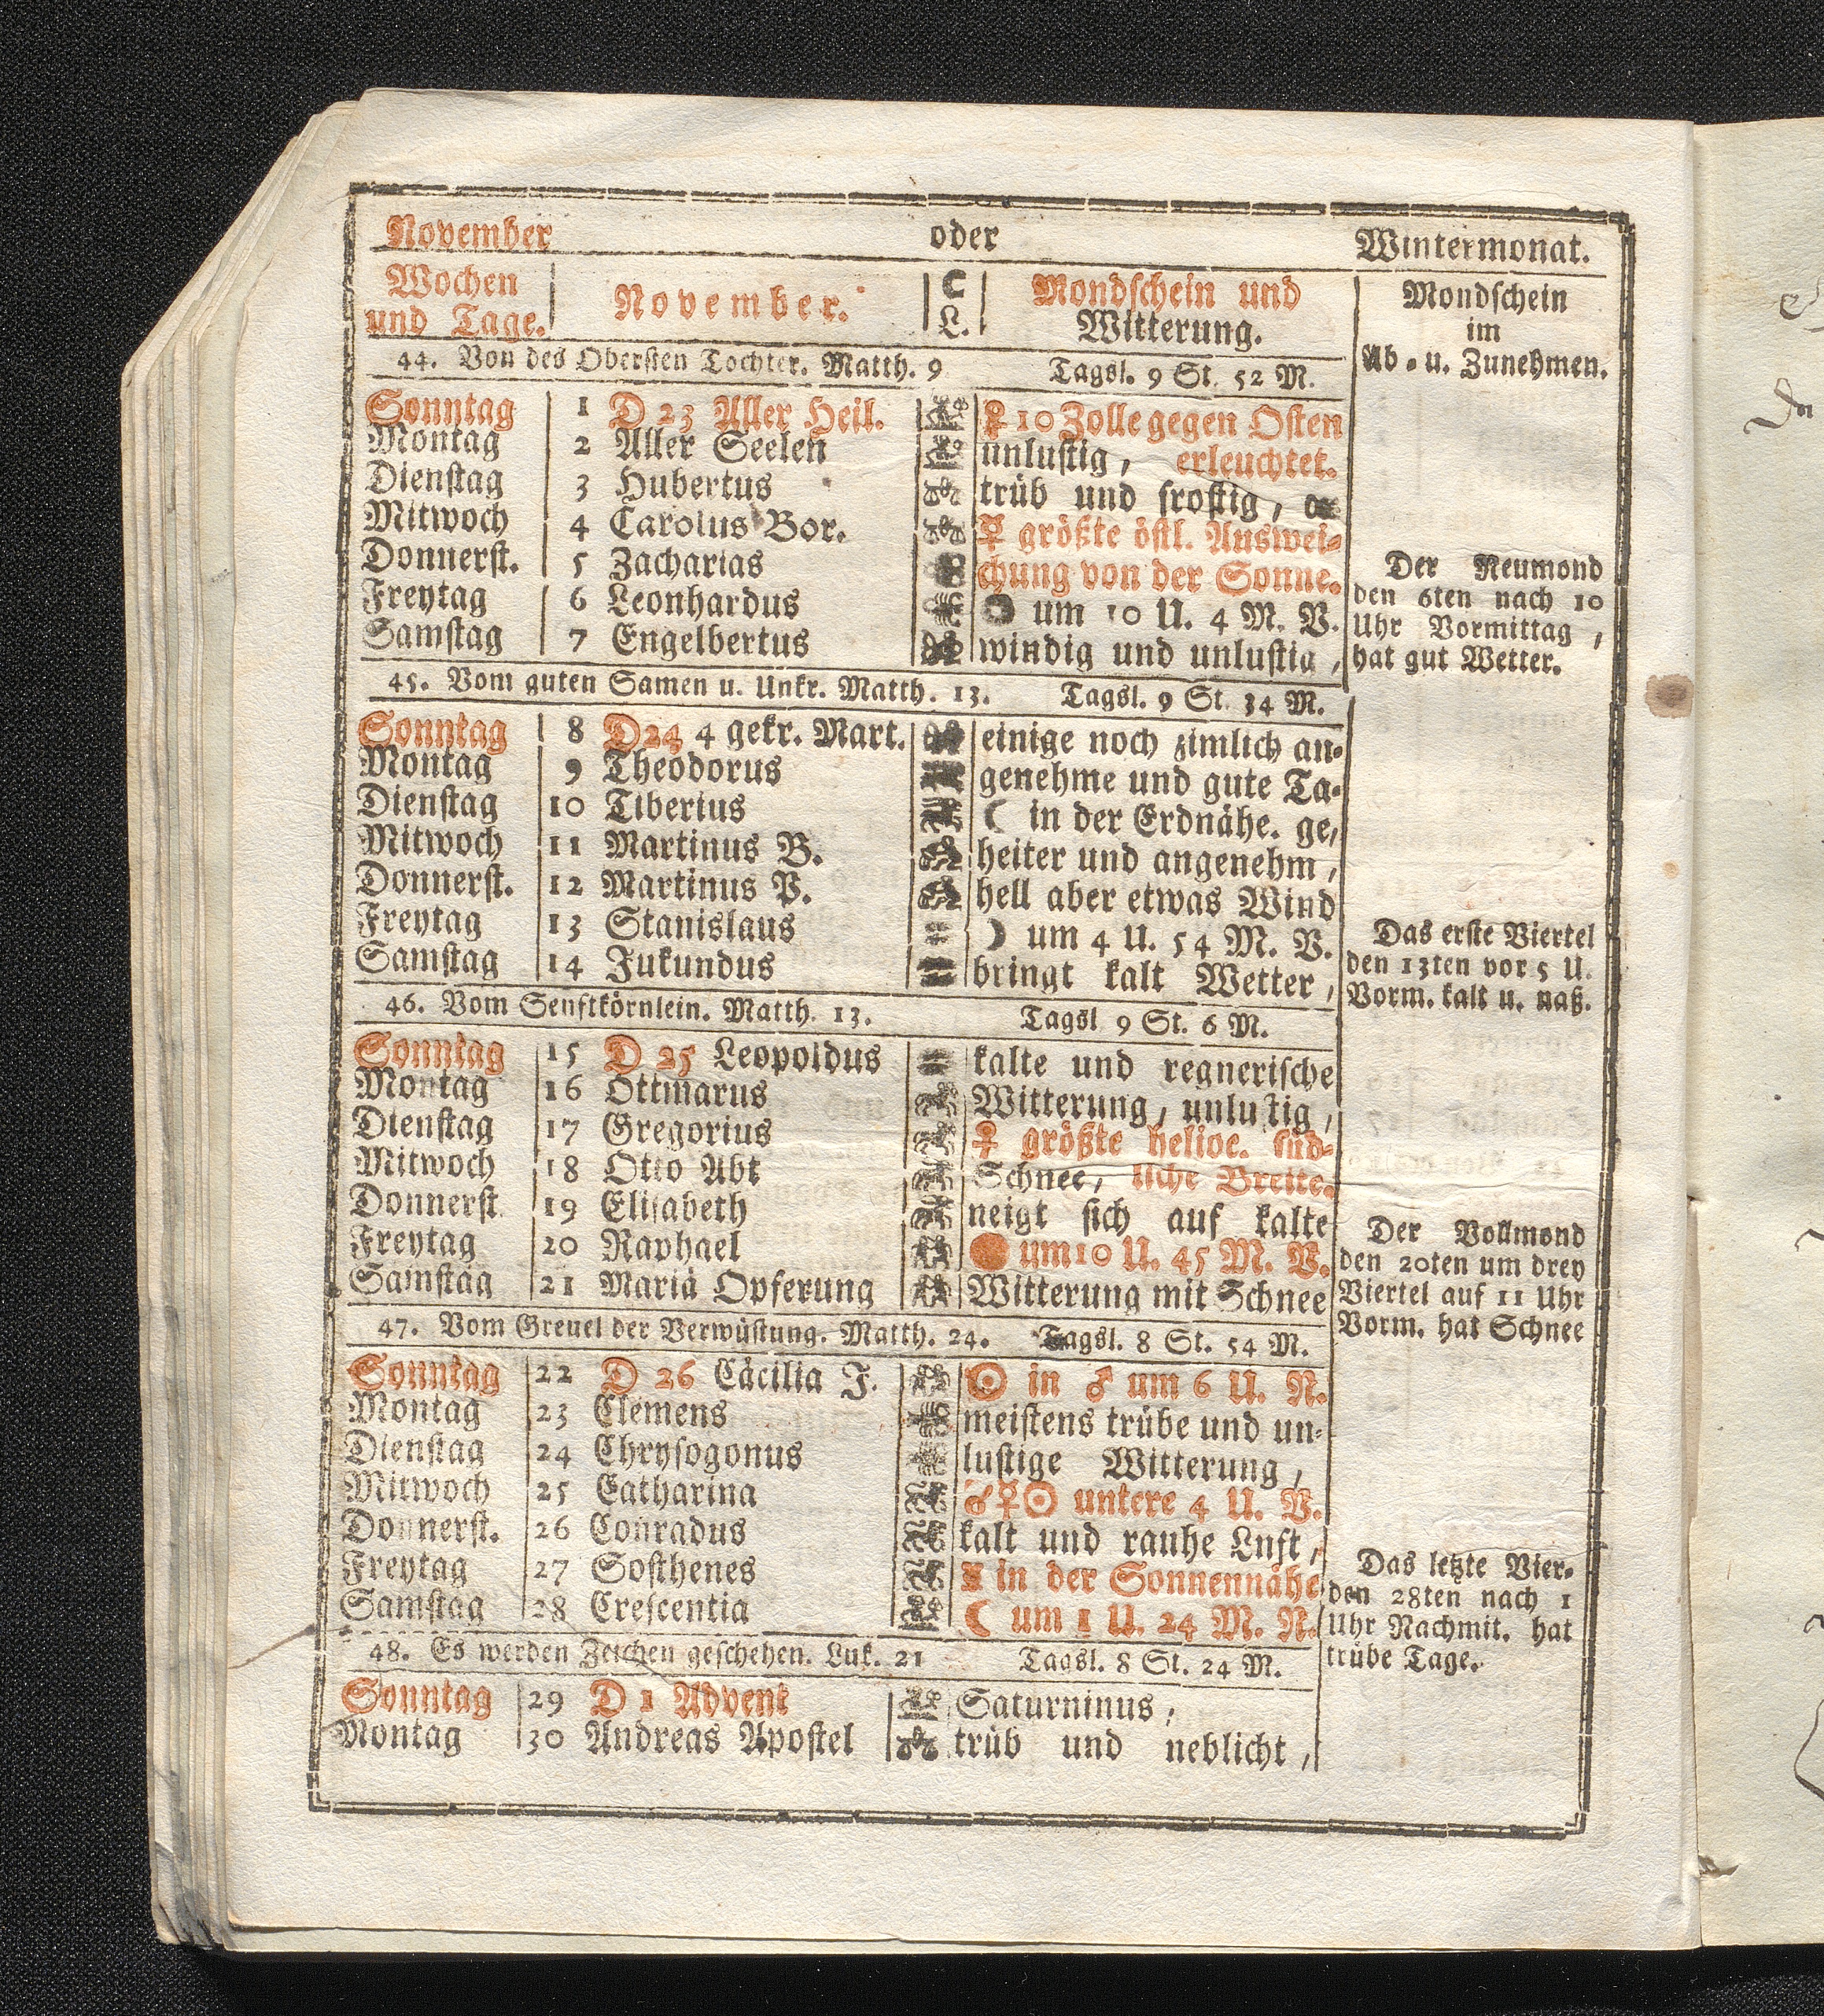 November oder Wintermonat.
Wochen und Tage.
November.
☾ L.
Mondschein und Witterung.
Mondschein
im
Ab- u. Zunehmen.
44. Von des Obersten Tochter. Matth. 9 Tagsl. 9 St. 52 M.
Sonntag 1 D 23 Aller Heil. ♀ 10 Zolle gegen Osten
Montag 2 Aller Seelen unlustig, erleuchtet.
Dienstag 3 Hubertus trüb und frostig,
Mitwoch 4 Carolus Bor. ☿ größte östl. Auswei-
Donnerst. 5 Zacharias chung von der Sonne.
Freytag 6 Leonhardus um 10 U. 4 M. V.
Samstag 7 Engelbertus windig und unlustig,
Der Neumond
den 6ten nach 10
Uhr Vormittag,
hat gut Wetter.
45. Vom guten Samen u. Unkr. Matth. 13. Tagsl. 9 St. 34 M.
Sonntag 8 D 24 4 gekr. Mart. einige noch zimlich an-
Montag 9 Theodorus genehme und gute Ta-
Dienstag 10 Tiberius ☾ in der Erdnähe. ge,
Mitwoch 11 Martinus B. heiter und angenehm,
Donnerst. 12 Martinus P. hell aber etwas Wind
Freytag 13 Stanislaus ☽ um 4 U. 54 M. V.
Samstag 14 Jukundus bringt kalt Wetter,
Das erste Viertel
den 13ten vor 5 U.
Vorm. kalt u. naß.
46. Vom Senftkörnlein. Matth. 13. Tagsl 9 St. 6 M.
Sonntag 15 D 25 Leopoldus kalte und regnerische
Montag 16 Ottmarus Witterung, unlustig,
Dienstag 17 Gregorius ♀ größte helioc. süd-
Mitwoch 18 Otto Abt Schnee, liche Breite.
Donnerst. 19 Elisabeth neigt sich auf kalte
Freytag 20 Raphael um 10 U. 45 M. V.
Samstag 21 Mariä Opferung Witterung mit Schnee
Der Vollmond
den 20ten um drey
Viertel auf 11 Uhr
Vorm. hat Schnee
47. Vom Greuel der Verwüstung. Matth. 24. Tagsl. 8 St. 54 M.
Sonntag 22 D 26 Cäcilia J. ☉ in ♂ um 6 U. N.
Montag 23 Clemens meistens trübe und un-
Dienstag 24 Chrysogonus lustige Witterung,
Mitwoch 25 Catharina ☌ ☿ ☉ untere 4 U. V.
Donnerst. 26 Conradus kalt und rauhe Luft,
Freytag 27 Sosthenes ☿ in der Sonnennähe
Samstag 28 Crescentia ☾ um 1 U. 24 M. N.
Das letzte Vier.
den 28ten nach 1
Uhr Nachmit. hat
trübe Tage.
48. Es werden Zeichen geschehen. Luk. 21 Tagsl. 8 St. 24 M.
Sonntag 29 D 1 Advent Saturninus,
Montag 30 Andreas Apostel trüb und neblicht,